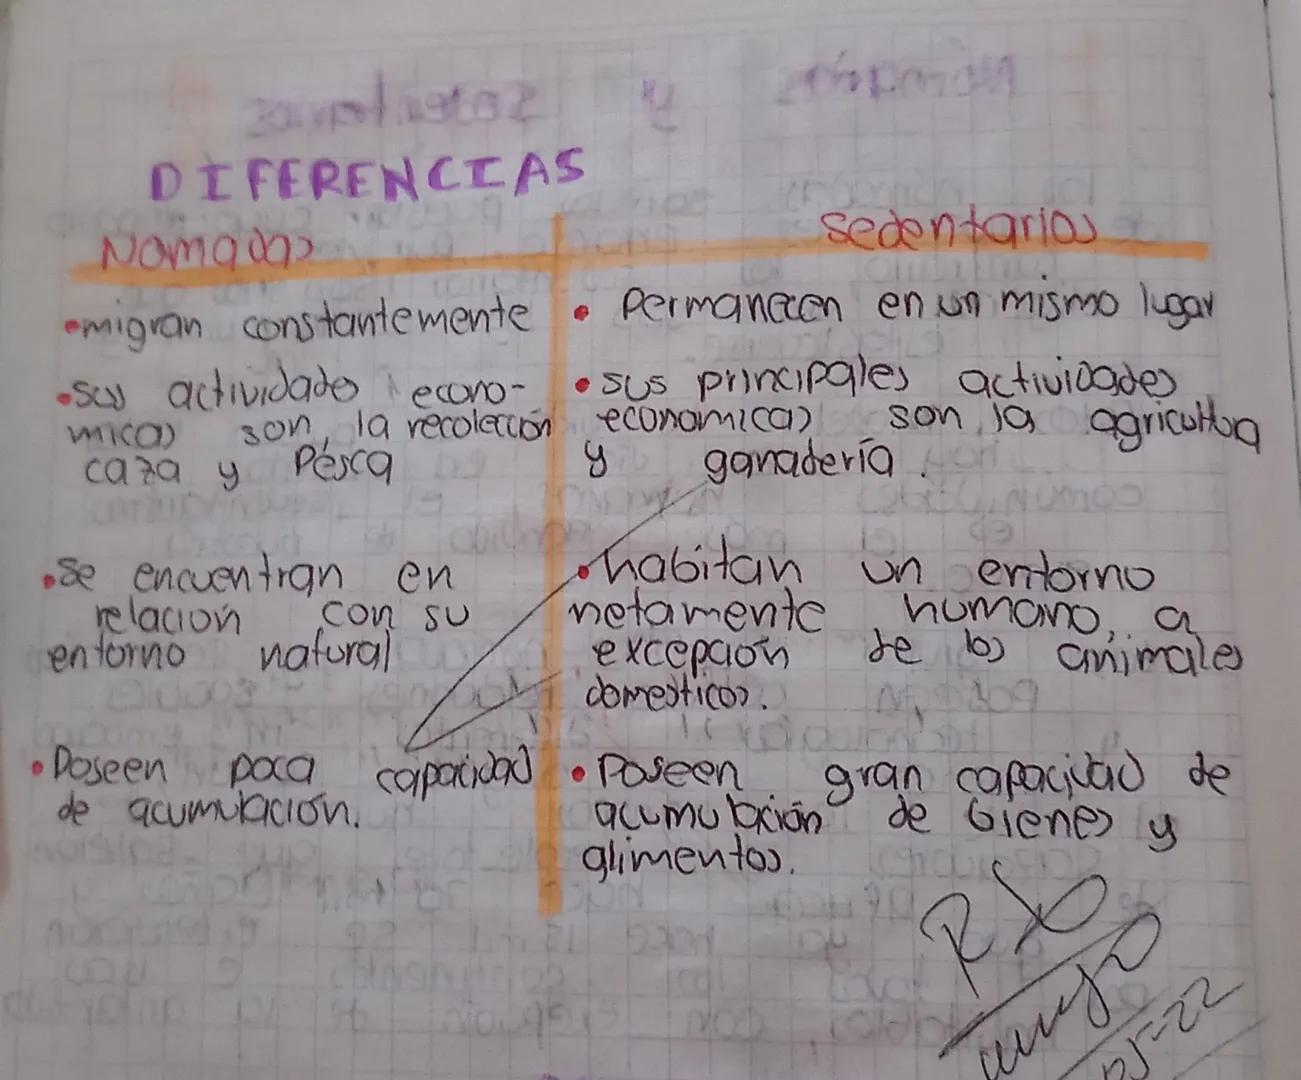 DIFERENCIAS
Nomadas
sedentarios
•migran constantemente
•sus actividades econo-
micas son, la recolección
caza y Pesca
•se encuentran en
relación con su
entorno natural
•Poseen poca capacidad
de acumulación.
• Permanecen en un mismo lugar
•sus principales actividades
economicas son la agricultura
y ganadería.
•habitan un entorno
netamente humano, a
excepción de los animales
domesticos.
•Poseen gran capacidad de
acumulación de bienes y
alimentos.